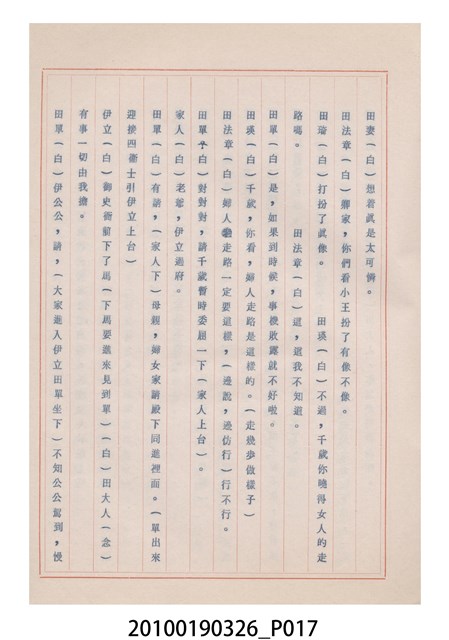 田妻(白)想着眞是太可憐。
田法章(白)卿家,你們看小王扮了有像不像。
田瑛(白)打扮了眞像。 田瑛(白)不過,千歲你曉得女人的走
路嗎。 田法章(白)這,這我不知道。
田單(白)是,如果到時候,事機敗露就不好啦。
田瑛(白)千歲,你看,婦人走路是這樣的。(走幾步做樣子)
田法章(白)婦人走路一定要這樣,(邊說,邊仿行)行不行。
田單(白)對對對,請千歲暫時委屈一下(家人上台)。
家人(白)老爺,伊立過府。
田單(白)有請,(家人下)母親,婦女家請殿下同進裡面。(單出來
迎接四衞士引伊立上台)
伊立(白)御史衙前下了馬(下馬要進來見到單)(白)田大人(念)
有事一切由我擔。
田單(白)伊公公,請,(大家進入伊立田單坐下)不知公公駕到,慢
20100190326_P017